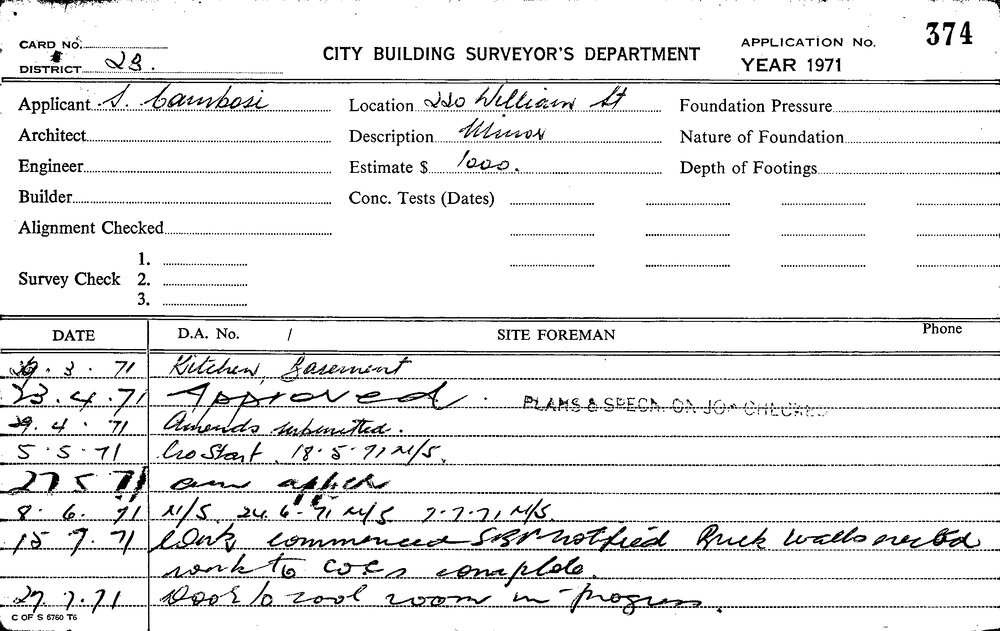 CARD No.
DISTRICT 23.
CITY BUILDING SURVEYOR'S DEPARTMENT
APPLICATION No. 374
YEAR 1971
Applicant S. Cambosi Location 220 William St Foundation Pressure
Architect Description Minor Nature of Foundation
Engineer Estimate $ 1000. Depth of Footings
Builder Conc. Tests (Dates)
Alignment Checked
Survey Check 1.
2.
3.
DATE D.A. No. / SITE FOREMAN Phone
3 . 71 Kitchen, Basement
23.4.71 Approved. PLANS & SPECN. ON JOB CHECKED
29.4.71 Amends submitted.
5.5.71 No Start. 18.5.71 N/S.
27 5 71
8.6.71 N/S. 24.6.71 N/S 7.7.71 N/S.
15 7.71 Work commenced notified Brick walls erected
work to complete.
27.7.71 Door to cool room in progress.
C OF S 6760 T6